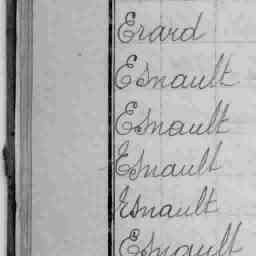 Erard
Esnault
Esnault
Esnault
Esnault
Esnault